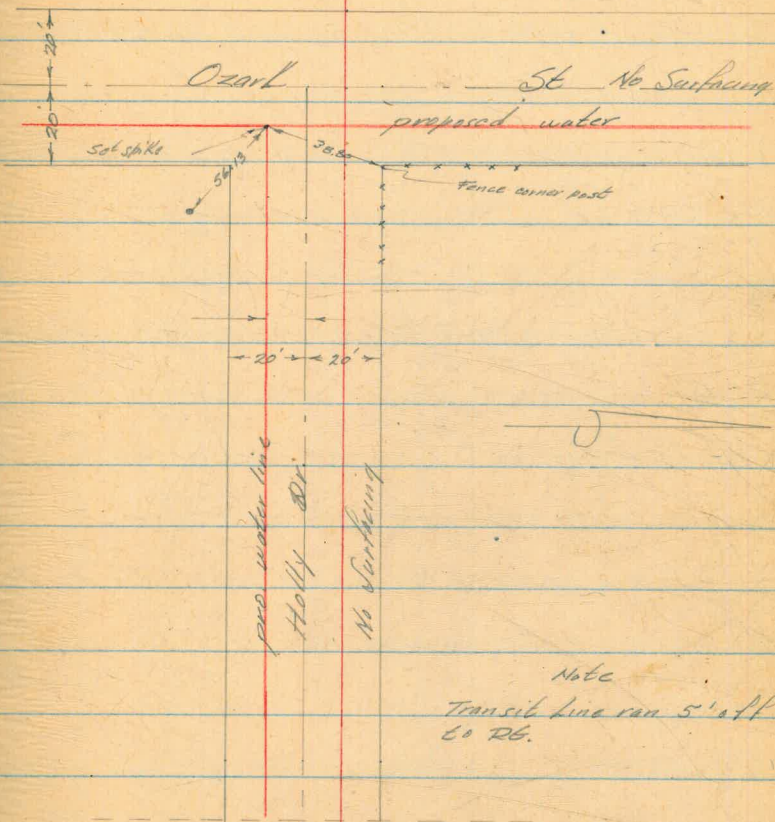 20'
20'
Ozark St No Surfacing
proposed water
Set spike
56.13
38.80
Fence corner post
20' 20'
pro water line
Holly Dr.
No Surfacing
Note
Transit Line ran 5' off
to Rt.